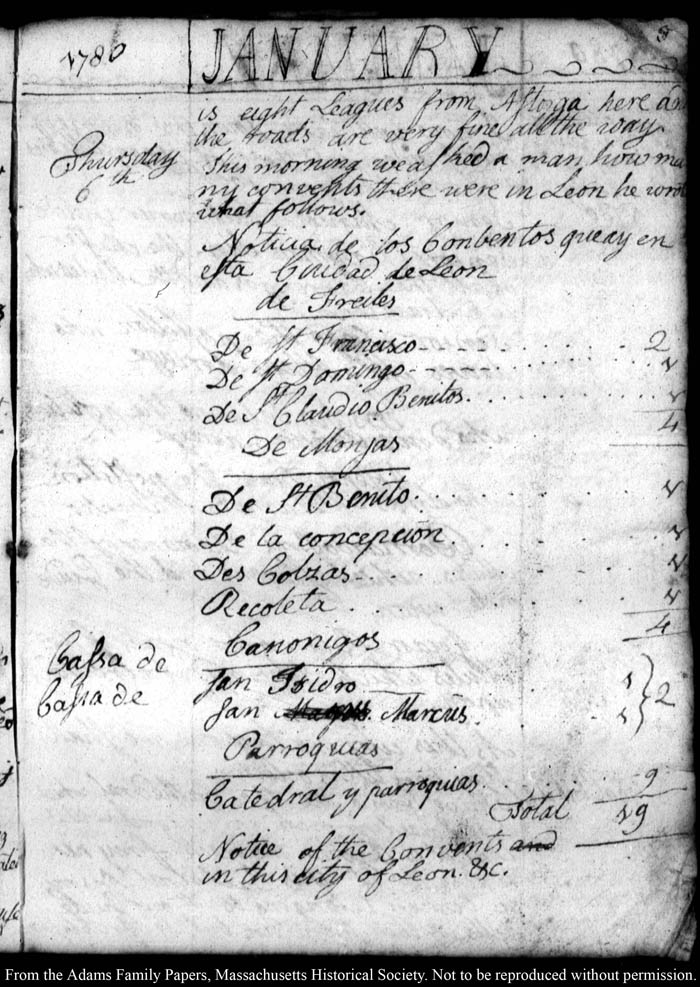 1780
JANUARY
8
is eight Leagues from Astorga here and
the roads are very fine all the way
Thursday
6th
This morning we asked a man how ma
ny convents there were in Leon he wrote
what follows.
Noticia de los Conbentos que ay en
esta Ciudad de Leon
de Freiles
De St Francisco 2
De St Domingo 1
De St Claudio Benitos 1
4
De Monjas
De St Benito 1
De la concepción 1
Des Colzas 1
Recoleta 1
4
Canonigos
Cassa de San Isidro 1
Cassa de San Marcus. 1
2
Parroquias
Catedral y parroquias 9
Total 19
Notice of the Convents and
in this city of Leon. &c.
From the Adams Family Papers, Massachusetts Historical Society. Not to be reproduced without permission.